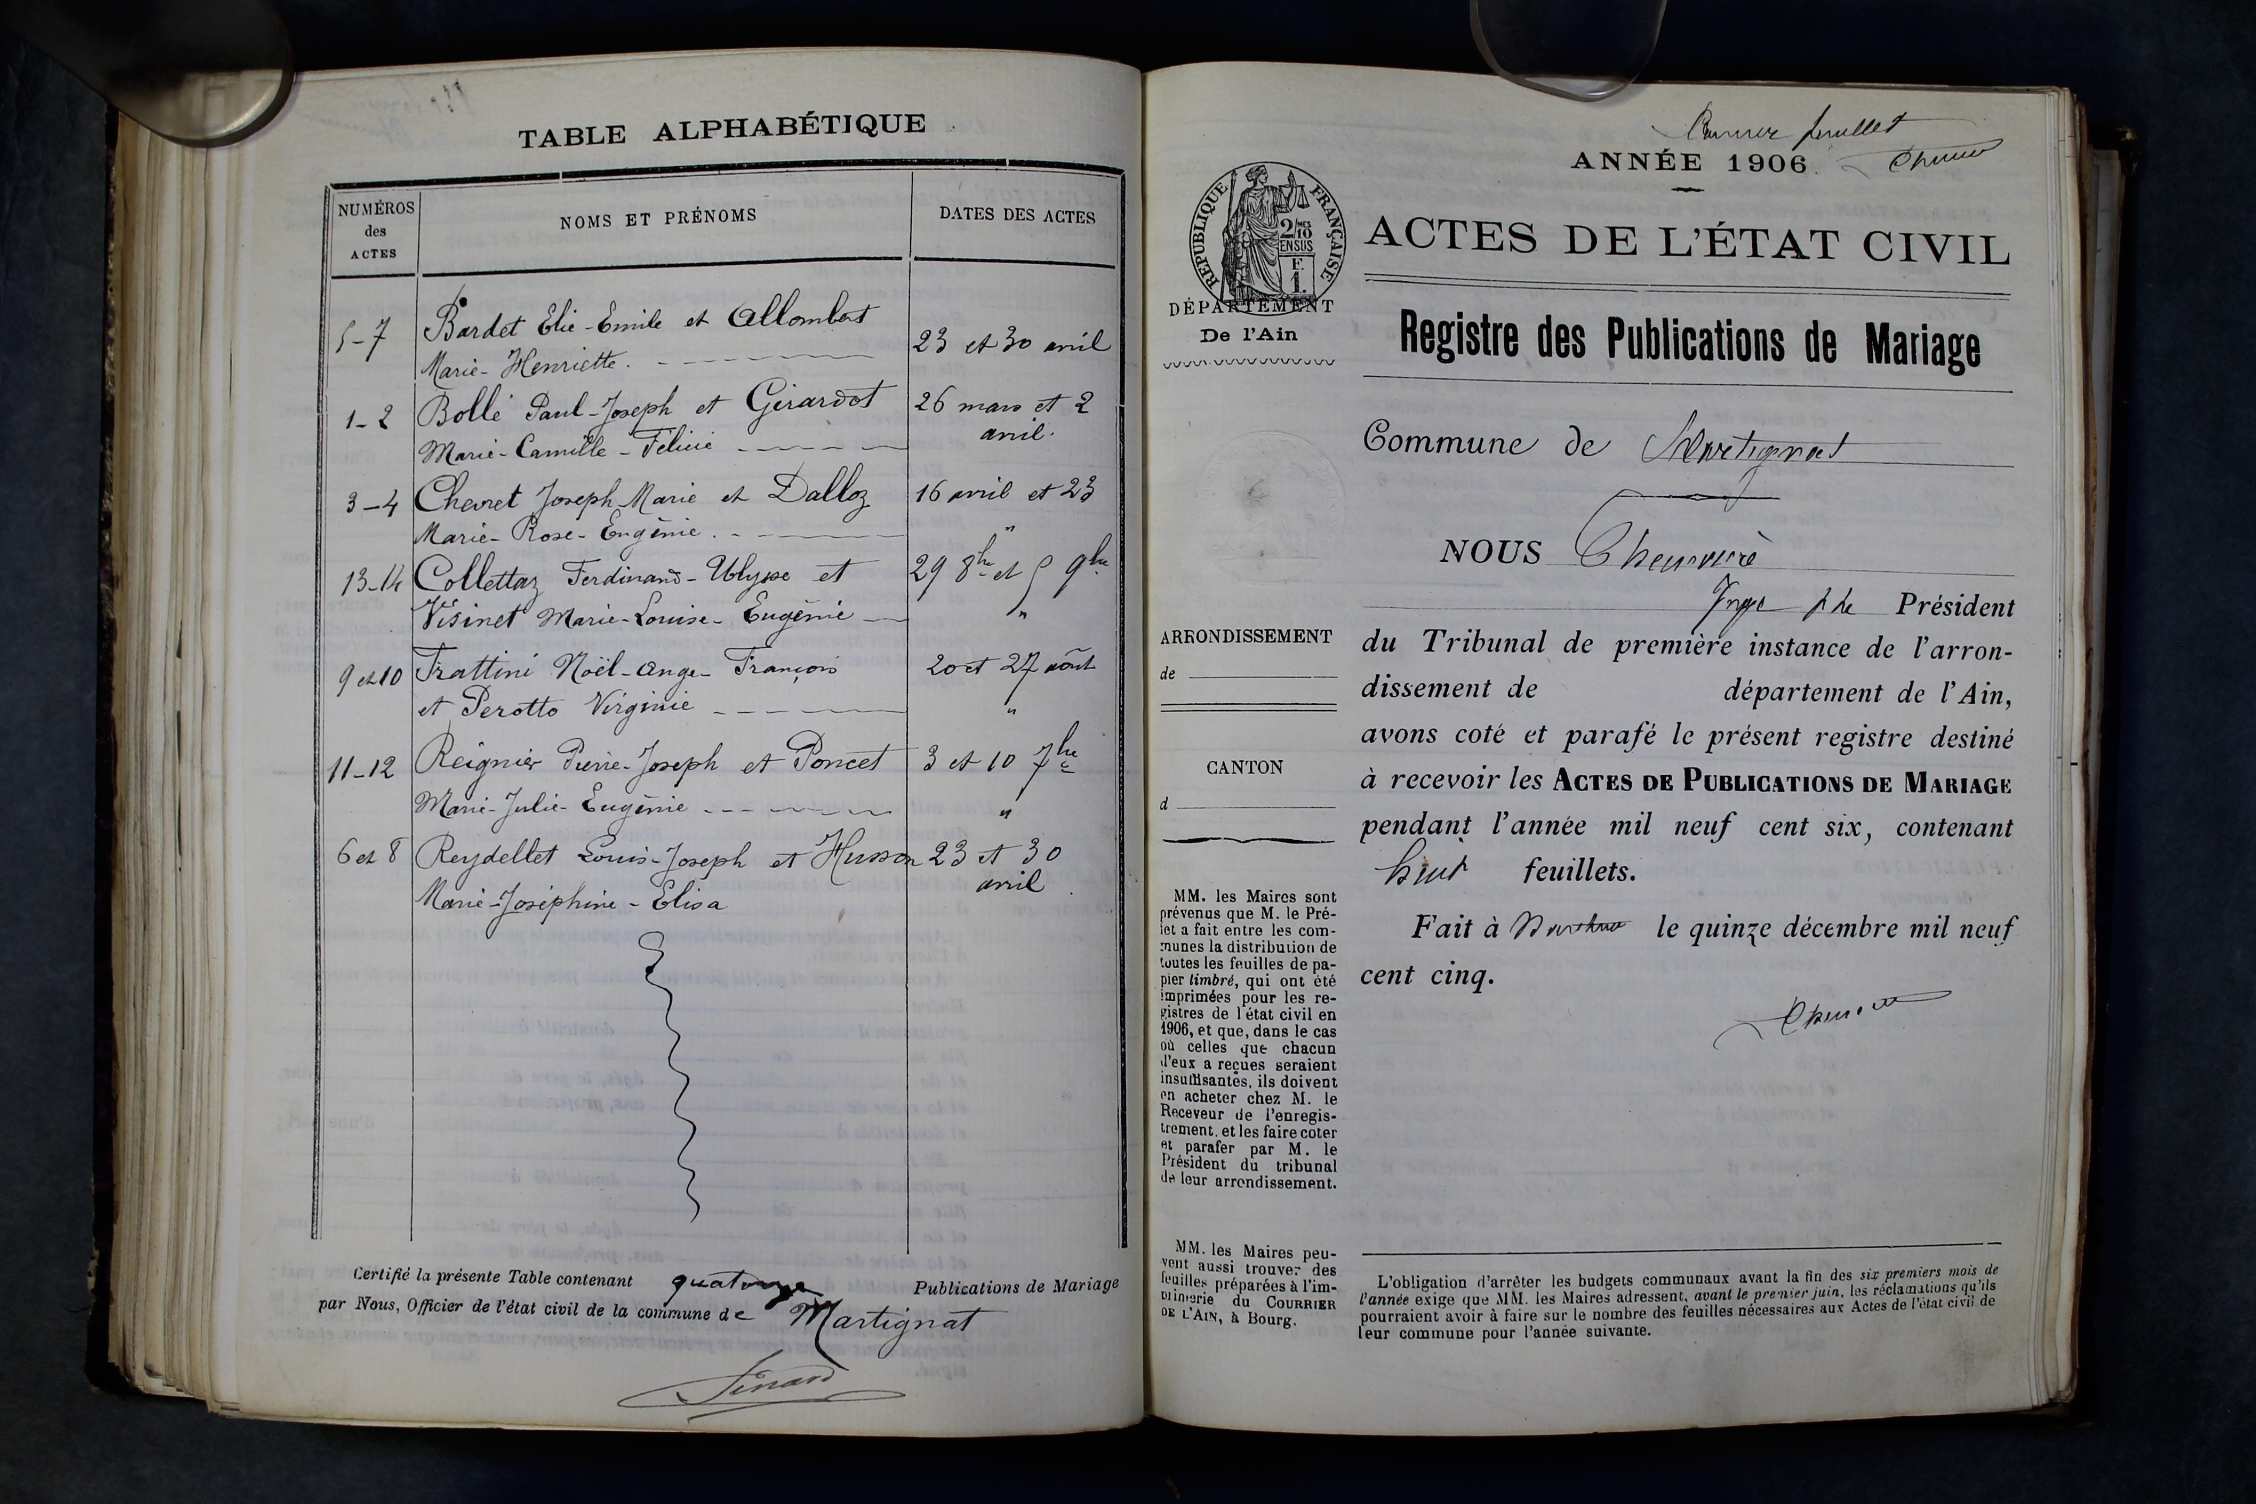 TABLE ALPHABÉTIQUE
NUMÉROS
des
ACTES
NOMS ET PRÉNOMS
DATES DES ACTES
5-7 Bardet Elie-Emile et Allombert
Marie-Henriette.
23 et 30 avril
1-2 Bollé Paul-Joseph et Girardot 26 mars et 2
Marie-Camille-Félicie avril.
3-4 Chevret Joseph Marie et Dalloz 16 avril et 23
Marie-Rose-Eugènie. "
13-14 Collettaz Ferdinand-Ulysse et 29 8bre et 5 9bre
Visinet Marie-Louise-Eugènie "
9 et 10 Frattini Noël-Ange-François 20 et 27 août
et Perotto Virginie "
11-12 Reignier Pierre-Joseph et Poncet 3 et 10 7bre
Marie-Julie-Eugènie "
6 et 8 Reydellet Louis-Joseph et Husson 23 et 30
Marie-Joséphine-Elisa avril
Certifié la présente Table contenant quatorze Publications de Mariage
par Nous, Officier de l'état civil de la commune de Martignat
feuillet
ANNÉE 1906
RÉPUBLIQUE FRANÇAISE
2/10
EN SUS
F.
1.
DÉPARTEMENT
De l'Ain
ACTES DE L'ÉTAT CIVIL
Registre des Publications de Mariage
Commune de Martignat
NOUS
Juge Président
du Tribunal de première instance de l'arron-
dissement de département de l'Ain,
avons coté et parafé le présent registre destiné
à recevoir les ACTES DE PUBLICATIONS DE MARIAGE
pendant l'année mil neuf cent six, contenant
huit feuillets.
Fait à Nantua le quinze décembre mil neuf
cent cinq.
ARRONDISSEMENT
de
CANTON
d
MM. les Maires sont
prévenus que M. le Pré-
fet a fait entre les com-
munes la distribution de
toutes les feuilles de pa-
pier timbré, qui ont été
imprimées pour les re-
gistres de l'état civil en
1906, et que, dans le cas
où celles que chacun
d'eux a reçues seraient
insuffisantes, ils doivent
en acheter chez M. le
Receveur de l'enregis-
trement, et les faire coter
et parafer par M. le
Président du tribunal
de leur arrondissement.
MM. les Maires peu-
vent aussi trouver des
feuilles préparées à l'im-
primerie du COURRIER
DE L'AIN, à Bourg.
L'obligation d'arrêter les budgets communaux avant la fin des six premiers mois de
l'année exige que MM. les Maires adressent, avant le premier juin, les réclamations qu'ils
pourraient avoir à faire sur le nombre des feuilles nécessaires aux Actes de l'état civil de
leur commune pour l'année suivante.